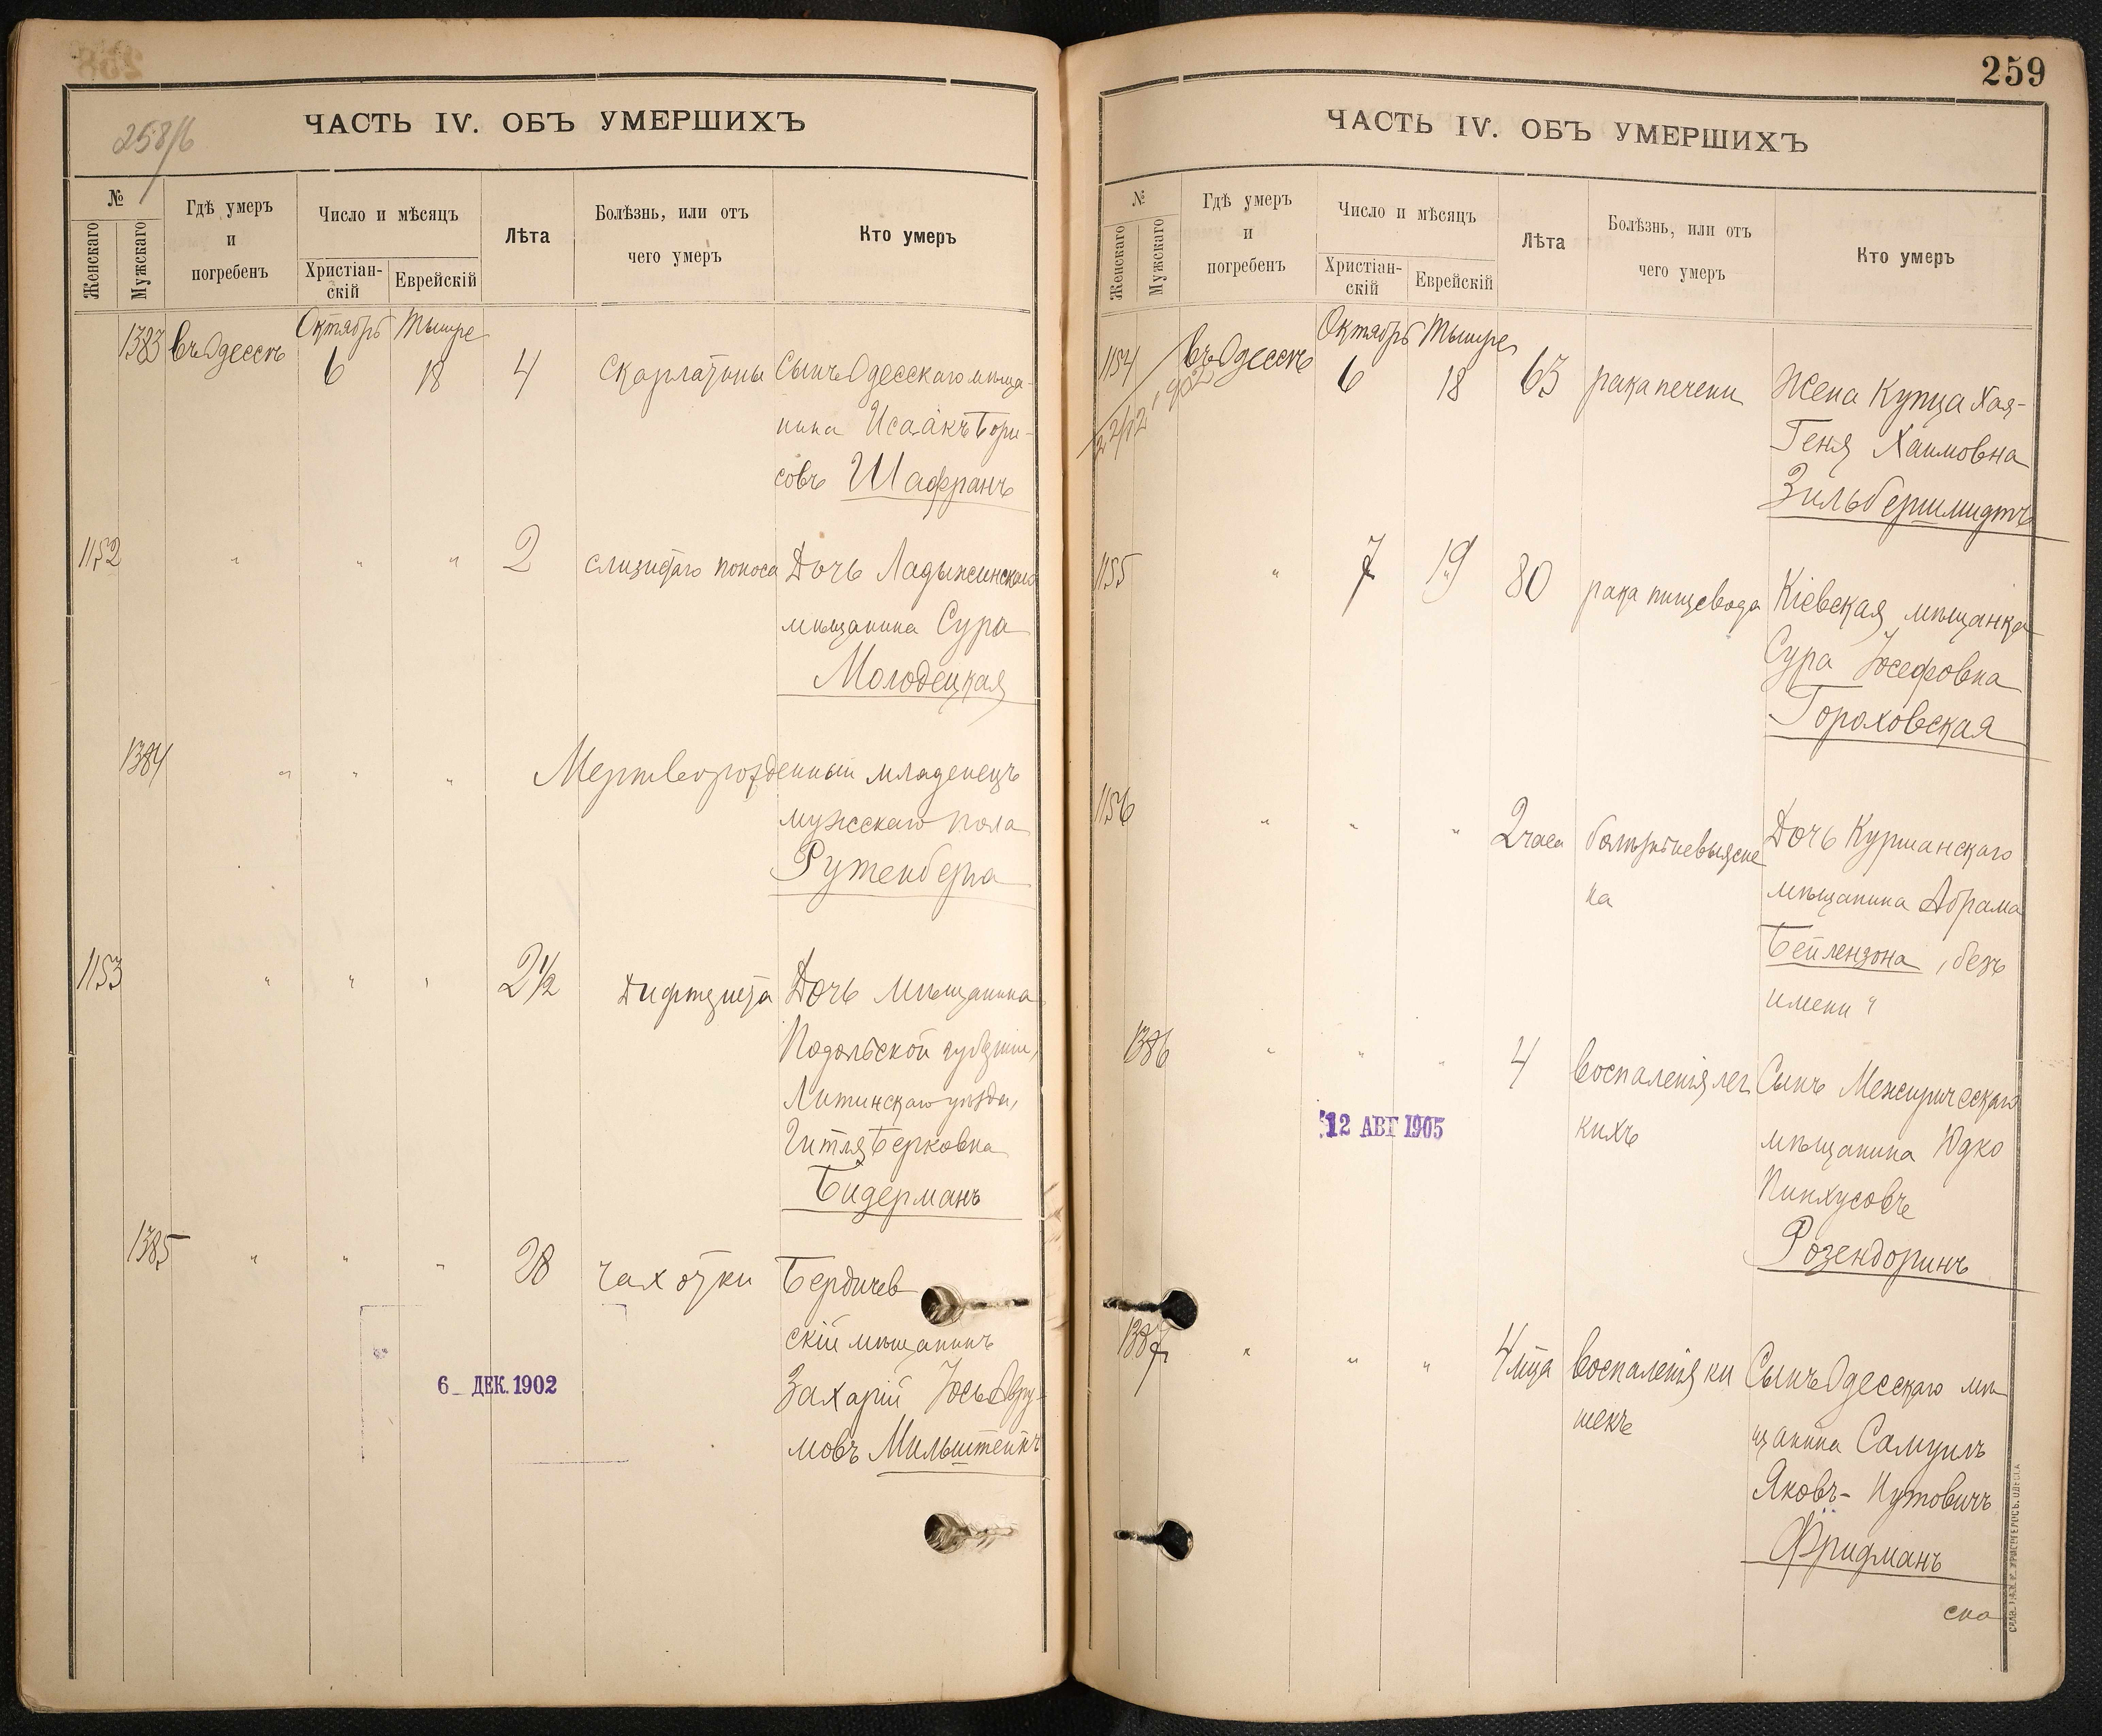 258/б
ЧАСТЬ IV. ОБЪ УМЕРШИХЪ
№
Женскаго
Мужскаго
Гдѣ умеръ
и
погребенъ
Число и мѣсяцъ
Христіан-
скій
Еврейскій
Лѣта
Болѣзнь, или отъ
чего умеръ
Кто умеръ
Октябрь Тышре
1383 въ Одессѣ 6 18 4 скарлатины Сынъ Одесскаго мѣща-
нина Исаакъ Бори-
совъ Шафранъ
1152 " " " 2 слизистаго поноса Дочь Ладыжинскаго
мѣщанина Сура
Молодецкая
1384 " " " Мертворожденный младенецъ
мужескаго пола
Рутенберга
1153 " " " 2 1/2 Дифтерита Дочь мѣщанина
Подольской губерніи,
Литинскаго уѣзда,
Гитля Берковна
Бидерманъ
1385 " " " 28 чахотки Бердичев
скій мѣщанинъ
Захарій Іось Авру-
мовъ Мильштейнъ
6 ДЕК. 1902
259
ЧАСТЬ IV. ОБЪ УМЕРШИХЪ
№
Женскаго
Мужскаго
Гдѣ умеръ
и
погребенъ
Число и мѣсяцъ
Христіан-
скій
Еврейскій
Лѣта
Болѣзнь, или отъ
чего умеръ
Кто умеръ
Октябрь Тышре
1154 въ Одессѣ 6 18 63 рака печени Жена Купца Хая-
Геня Хаимовна
Зильбершмидтъ
1155 " 7 19 80 рака пищевода Кіевская мѣщанка
Сура Іосефовна
Гороховская
1156 " " " 2 часа болѣзнь невыясне
на
Дочь Куршанскаго
мѣщанина Абрама
Бейлензона, безъ
имени "
1386 " " " 4 воспаленія лег
кихъ
Сынъ Межиричсскаго
мѣщанина Юдко
Пинхусовъ
Розендоринъ
12 АВГ 1905
1387 " " " 4 мца воспаленія ки
шекъ
Сынъ Одесскаго мѣ
щанина Самуилъ
Яковъ- Нутовичъ
Фридманъ